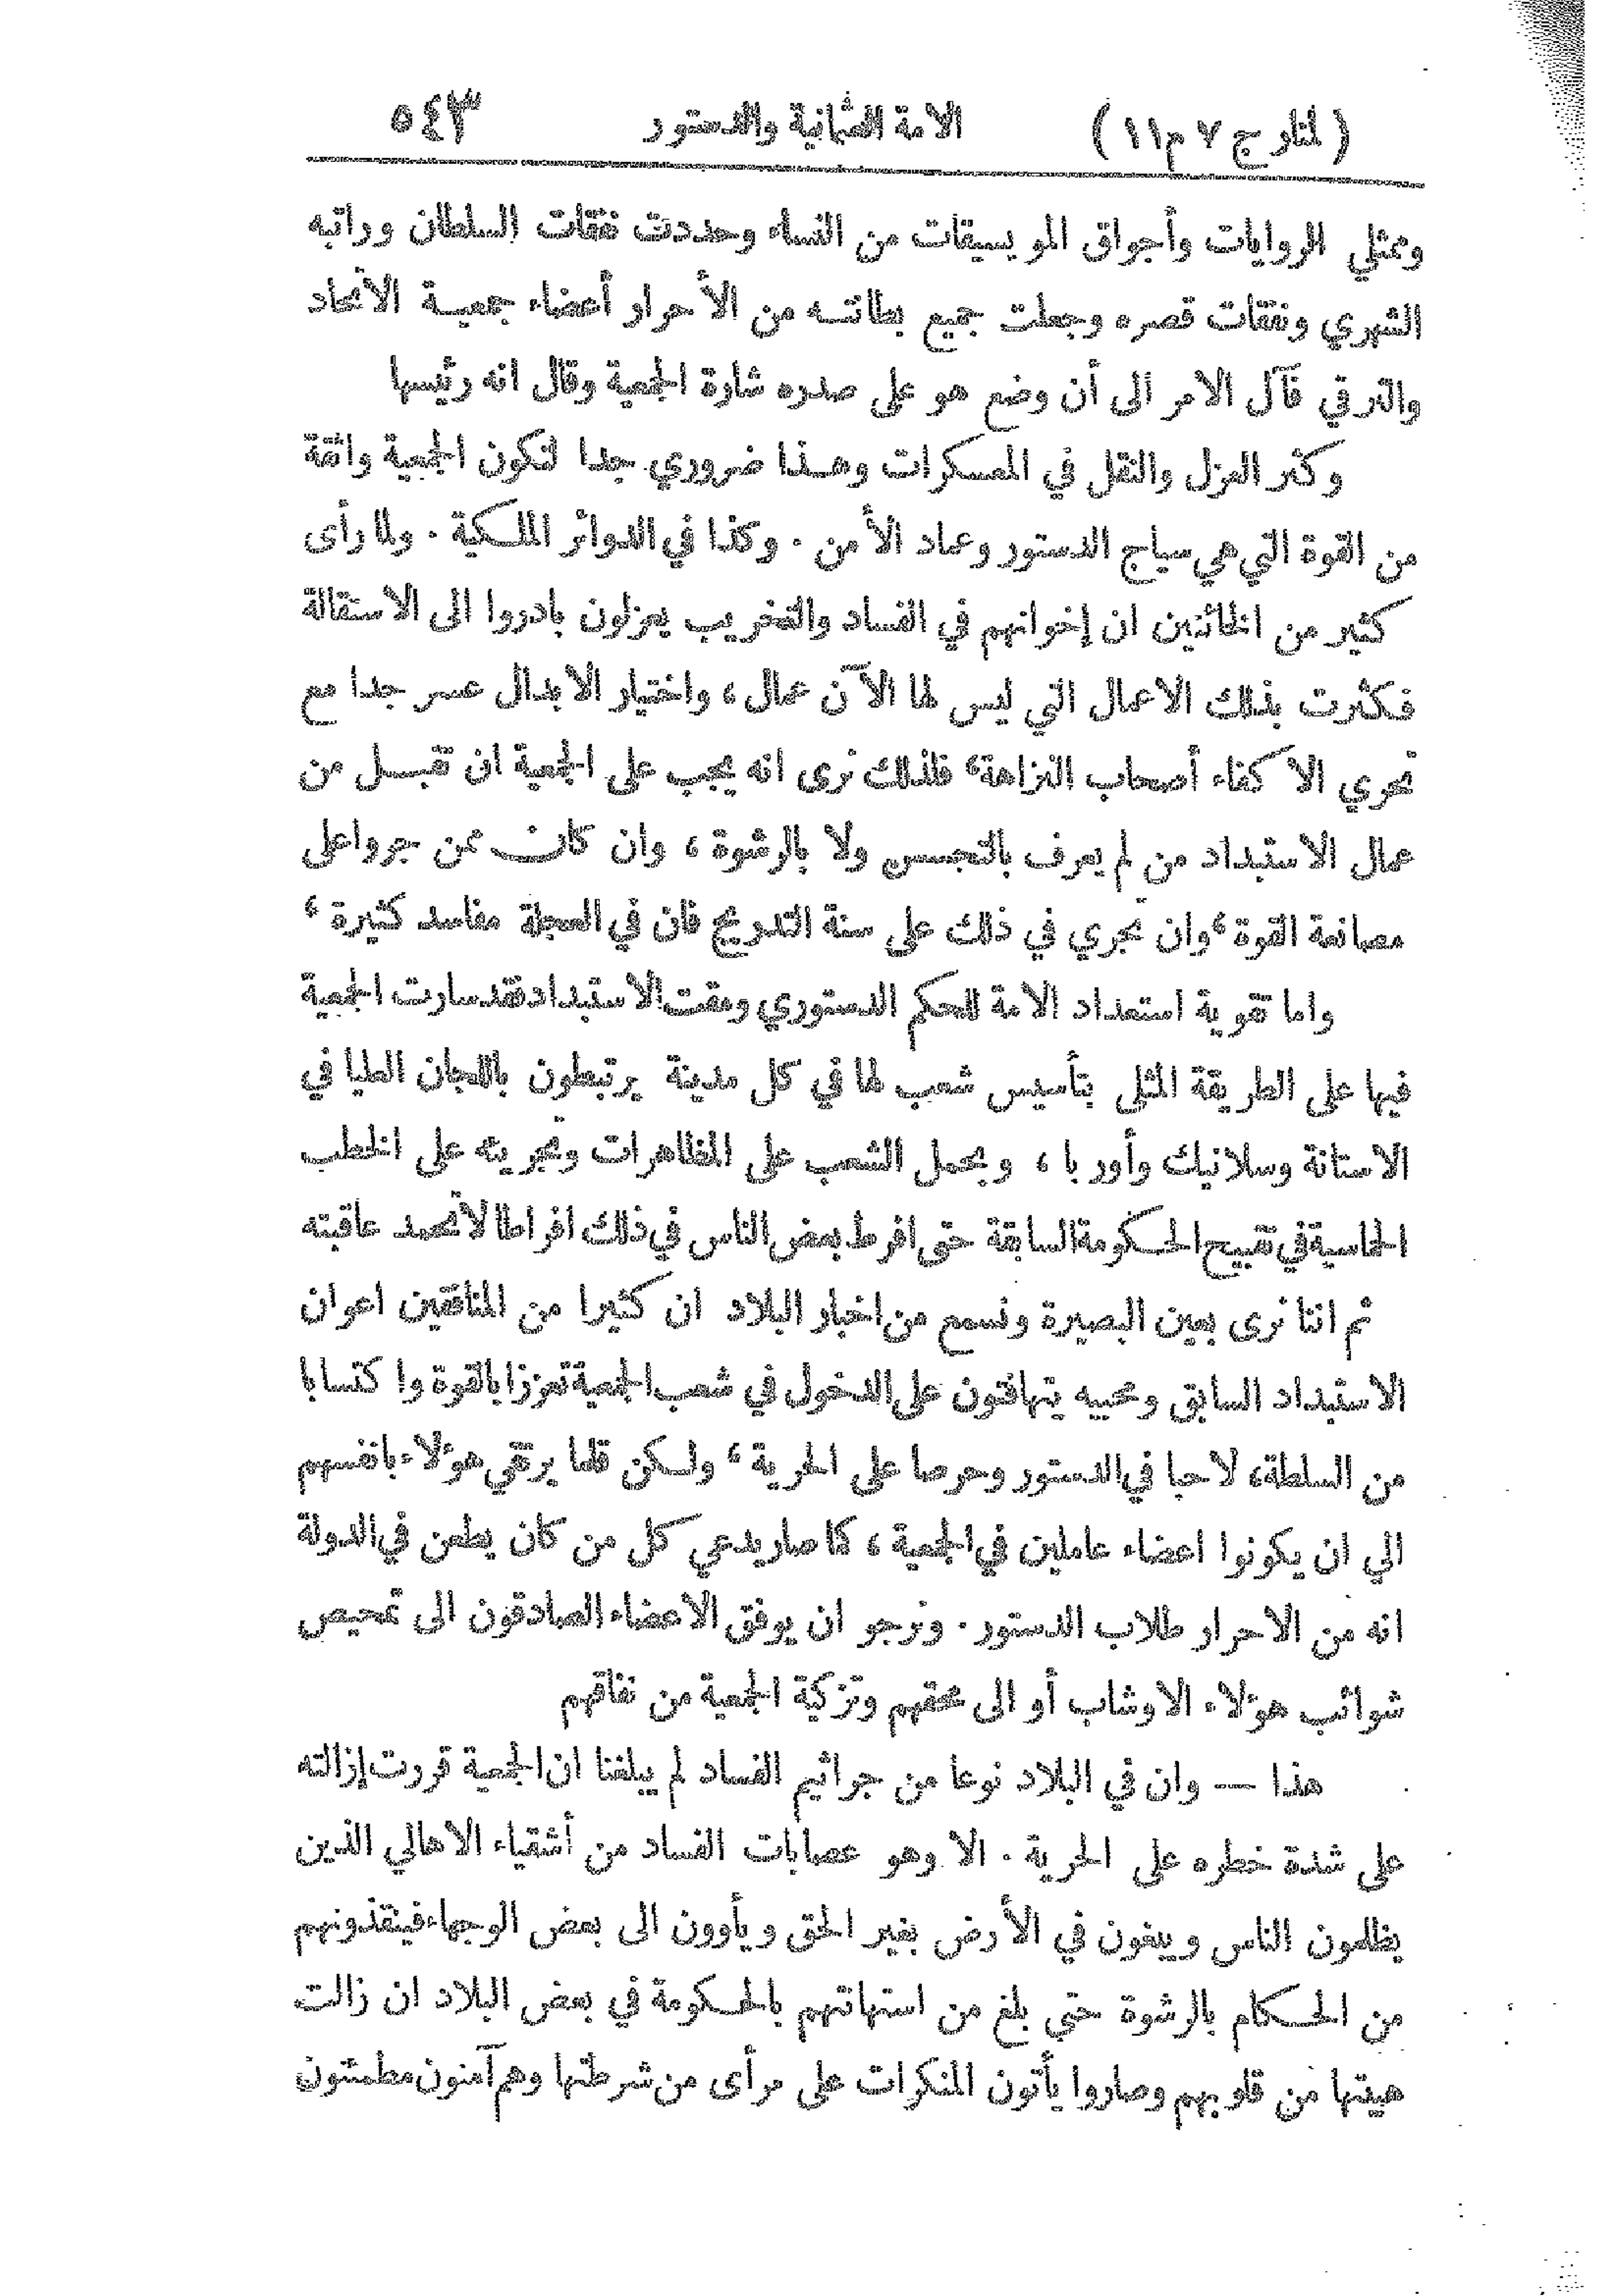 (المنار ج ٧ م ١١) الامة العثمانية والدستور ٥٤٣
وممثلي الروايات وأجواق الموسيقات من النساء وحددت نفقات السلطان وراتبه
الشهري ونفقات قصره وجعلت جميع بطانته من الأحرار أعضاء جمعية الاتحاد
والترقي فآل الامر الى أن وضع هو على صدره شارة الجمعية وقال انه رئيسها
وكثر العزل والنقل في المعسكرات وهذا ضروري جدا لتكون الجمعية واثقة
من القوة التي هي سياج الدستور وعماد الأمن . وكذا في الدوائر الملكية . ولما رأى
كثير من الخائنين ان إخوانهم في الفساد والتخريب يعزلون بادروا الى الاستقالة
فكثرت بذلك الاعمال التي ليس لها الآن عمال ، واختيار الابدال عسر جدا مع
تحري الاكفاء أصحاب النزاهة ، فلذلك نرى انه يجب على الجمعية ان تقبل من
عمال الاستبداد من لم يعرف بالتجسس ولا بالرشوة ، وان كان ممن جروا على
مصانعة القوة ، وان تجري في ذلك على سنة التدريج فان في العجلة مفاسد كثيرة ،
واما تقوية استعداد الامة للحكم الدستوري ومقت الاستبداد فقد سارت الجمعية
فيها على الطريقة المثلى بتأسيس شعب لها في كل مدينة يرتبطون باللجان العليا في
الاستانة وسلانيك وأوربا ، وبحمل الشعب على المظاهرات وتجرئته على الخطب
الحماسية في تقبيح الحكومة السابقة حتى افرط بعض الناس في ذلك افراطا لا تحمد عاقبته
ثم اننا نرى بعين البصيرة ونسمع من اخبار البلاد ان كثيرا من المنافقين اعوان
الاستبداد السابق ومحبيه يتهافتون على الدخول في شعب الجمعية تعززا بالقوة واكتسابا
من السلطة ، لا حبا في الدستور وحرصا على الحرية ، ولكن قلما يرتقي هؤلاء بانفسهم
الي ان يكونوا اعضاء عاملين في الجمعية ، كما صار يدعي كل من كان يطعن في الدولة
انه من الاحرار طلاب الدستور . ونرجو ان يوفق الاعضاء الصادقون الى تمحيص
شوائب هؤلاء الاوشاب أو الى محقهم وتزكية الجمعية من نفاقهم
هذا — وان في البلاد نوعا من جراثيم الفساد لم يبلغنا ان الجمعية قررت إزالته
على شدة خطره على الحرية . الا وهو عصابات الفساد من أشقياء الاهالي الذين
يظلمون الناس ويبغون في الأرض بغير الحق ويأوون الى بعض الوجهاء فينقذونهم
من الحكام بالرشوة حتي بلغ من استهانتهم بالحكومة في بعض البلاد ان زالت
هيبتها من قلوبهم وصاروا يأتون المنكرات على مرأى من شرطتها وهم آمنون مطمئنون